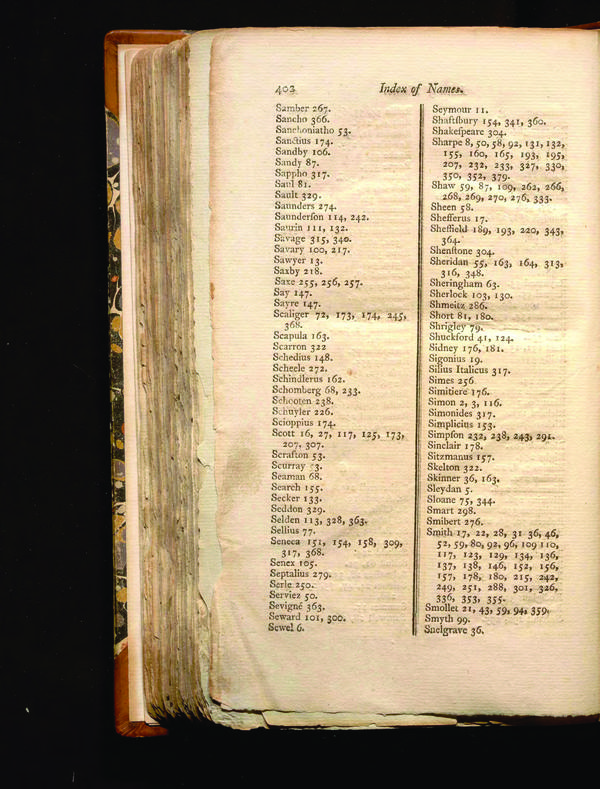 402
Index of Names.
Samber 267.
Sancho 366.
Sanchoniatho 53.
Sanctius 174.
Sandby 106.
Sandy 87.
Sappho 317.
Saul 81.
Sault 329.
Saunders 274.
Saunderſon 114, 242.
Saurin 111, 132.
Savage 315, 340.
Savary 100, 217.
Sawyer 13.
Saxby 218.
Saxe 255, 256, 257.
Say 147.
Sayre 147.
Scaliger 72, 173, 174, 245,
368.
Scapula 163.
Scarron 322
Schedius 148.
Scheele 272.
Schindlerus 162.
Schomberg 68, 233.
Schooten 238.
Schuyler 226.
Scioppius 174.
Scott 16, 27, 117, 125, 173,
207, 307.
Scrafton 53.
Scurray 3.
Seaman 68.
Search 155.
Secker 133.
Seddon 329.
Selden 113, 328, 363.
Sellius 77.
Seneca 151, 154, 158, 309,
317, 368.
Senex 105.
Septalius 279.
Serle 250.
Serviez 50.
Sevigné 363.
Seward 101, 300.
Sewel 6.
Seymour 11.
Shaftſbury 154, 341, 360.
Shakeſpeare 304.
Sharpe 8, 50, 58, 92, 131, 132,
155, 160, 165, 193, 195,
207, 232, 233, 327, 330,
350, 352, 379.
Shaw 59, 87, 109, 262, 266,
268, 269, 270, 276, 333.
Sheen 58.
Shefferus 17.
Sheffield 189, 193, 220, 343,
364.
Shenſtone 304.
Sheridan 55, 163, 164, 313,
316, 348.
Sheringham 63.
Sherlock 103, 130.
Shmeitz 286.
Short 81, 180.
Shrigley 79.
Shuckford 41, 124.
Sidney 176, 181.
Sigonius 19.
Silius Italicus 317.
Simes 256.
Simitiere 176.
Simon 2, 3, 116.
Simonides 317.
Simplicius 153.
Simpſon 232, 238, 243, 291.
Sinclair 178.
Sitzmanus 157.
Skelton 322.
Skinner 36, 163.
Sleydan 5.
Sloane 75, 344.
Smart 298.
Smibert 276.
Smith 17, 22, 28, 31 36, 46,
52, 59, 80, 92, 96, 109 110,
117, 123, 129, 134, 136,
137, 138, 146, 152, 156,
157, 178, 180, 215, 242,
249, 251, 288, 301, 326,
336, 353, 355.
Smollet 21, 43, 59, 94, 359.
Smyth 99.
Snelgrave 36.